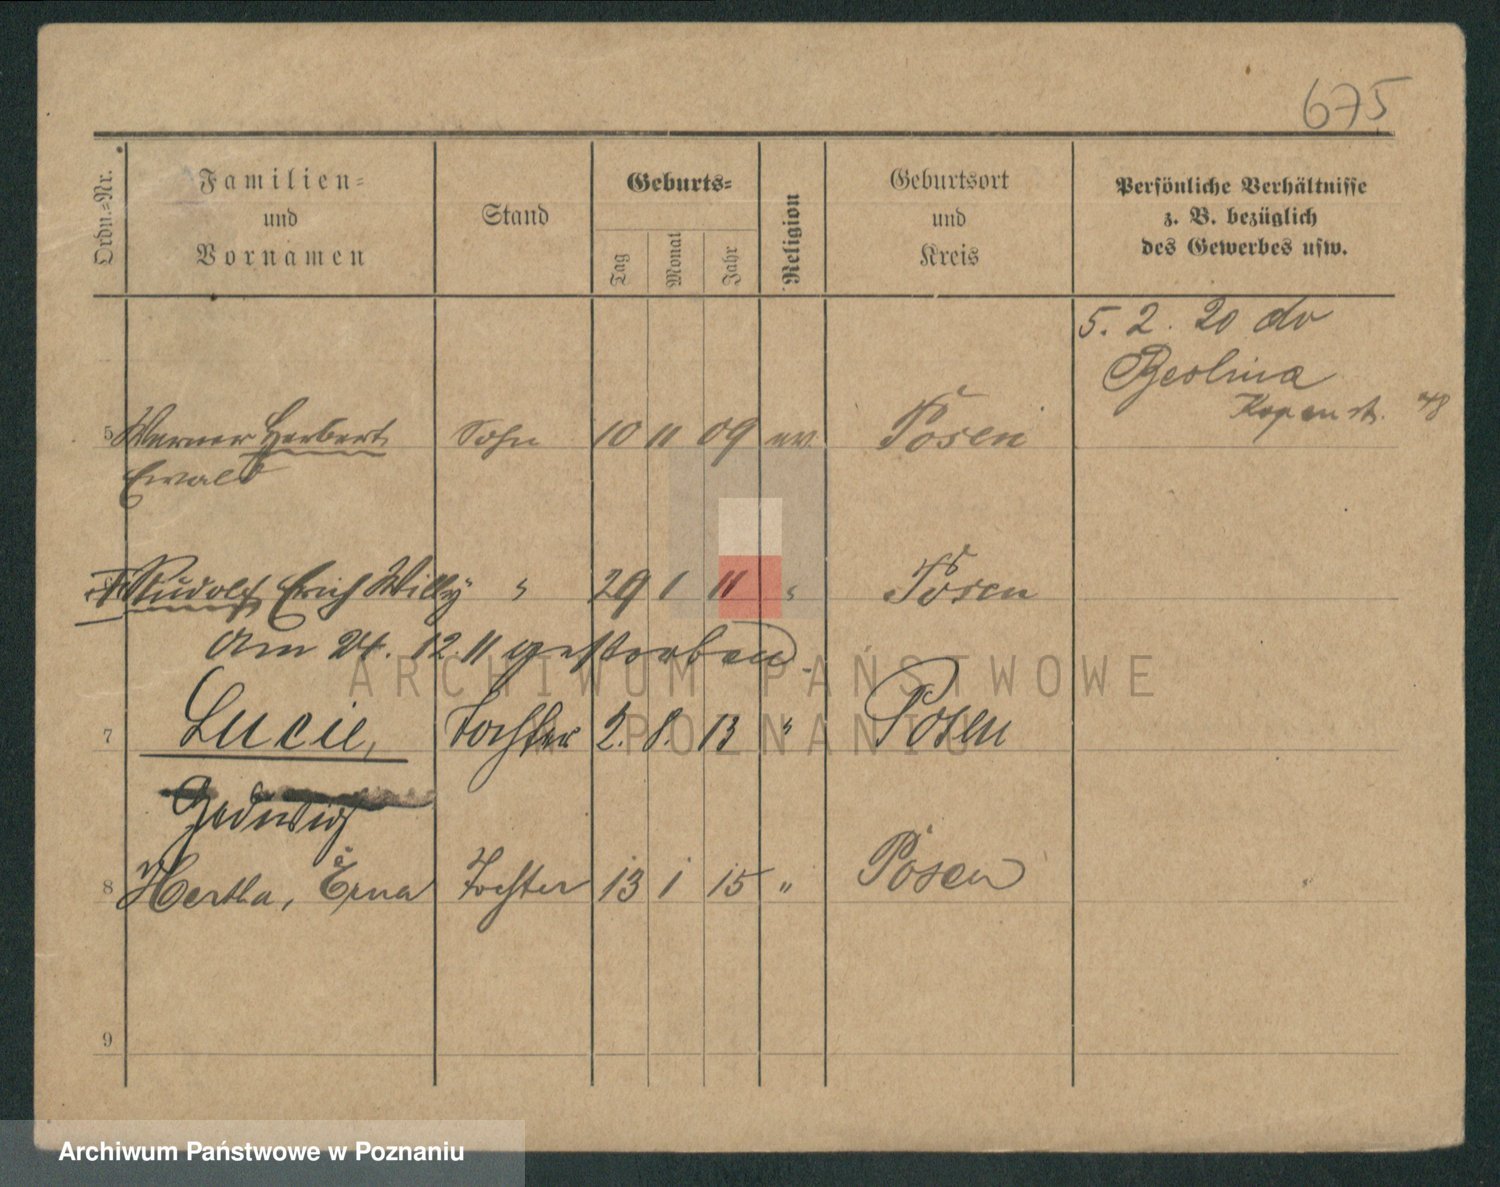 675
Ordn.=Nr.
Familien=
und
Vornamen
Stand
Geburts=
Tag
Monat
Jahr
Religion
Geburtsort
und
Kreis
Persönliche Verhältnisse
z. B. bezüglich
des Gewerbes usw.
5. 2. 20 do
Berlina
48
5 Werner Herbert Sohn 10 11 09 ev Posen
Ewald
Rudolf Erich Willy " 29 1 11 " Posen
Am 24. 12. 11 gestorben.
7 Lucie, Tochter 2. 8. 13 " Posen
Hedwig
8 Hertha, Erna Tochter 13 1 15 " Posen
9
ARCHIWUM PAŃSTWOWE
W POZNANIU
Archiwum Państwowe w Poznaniu